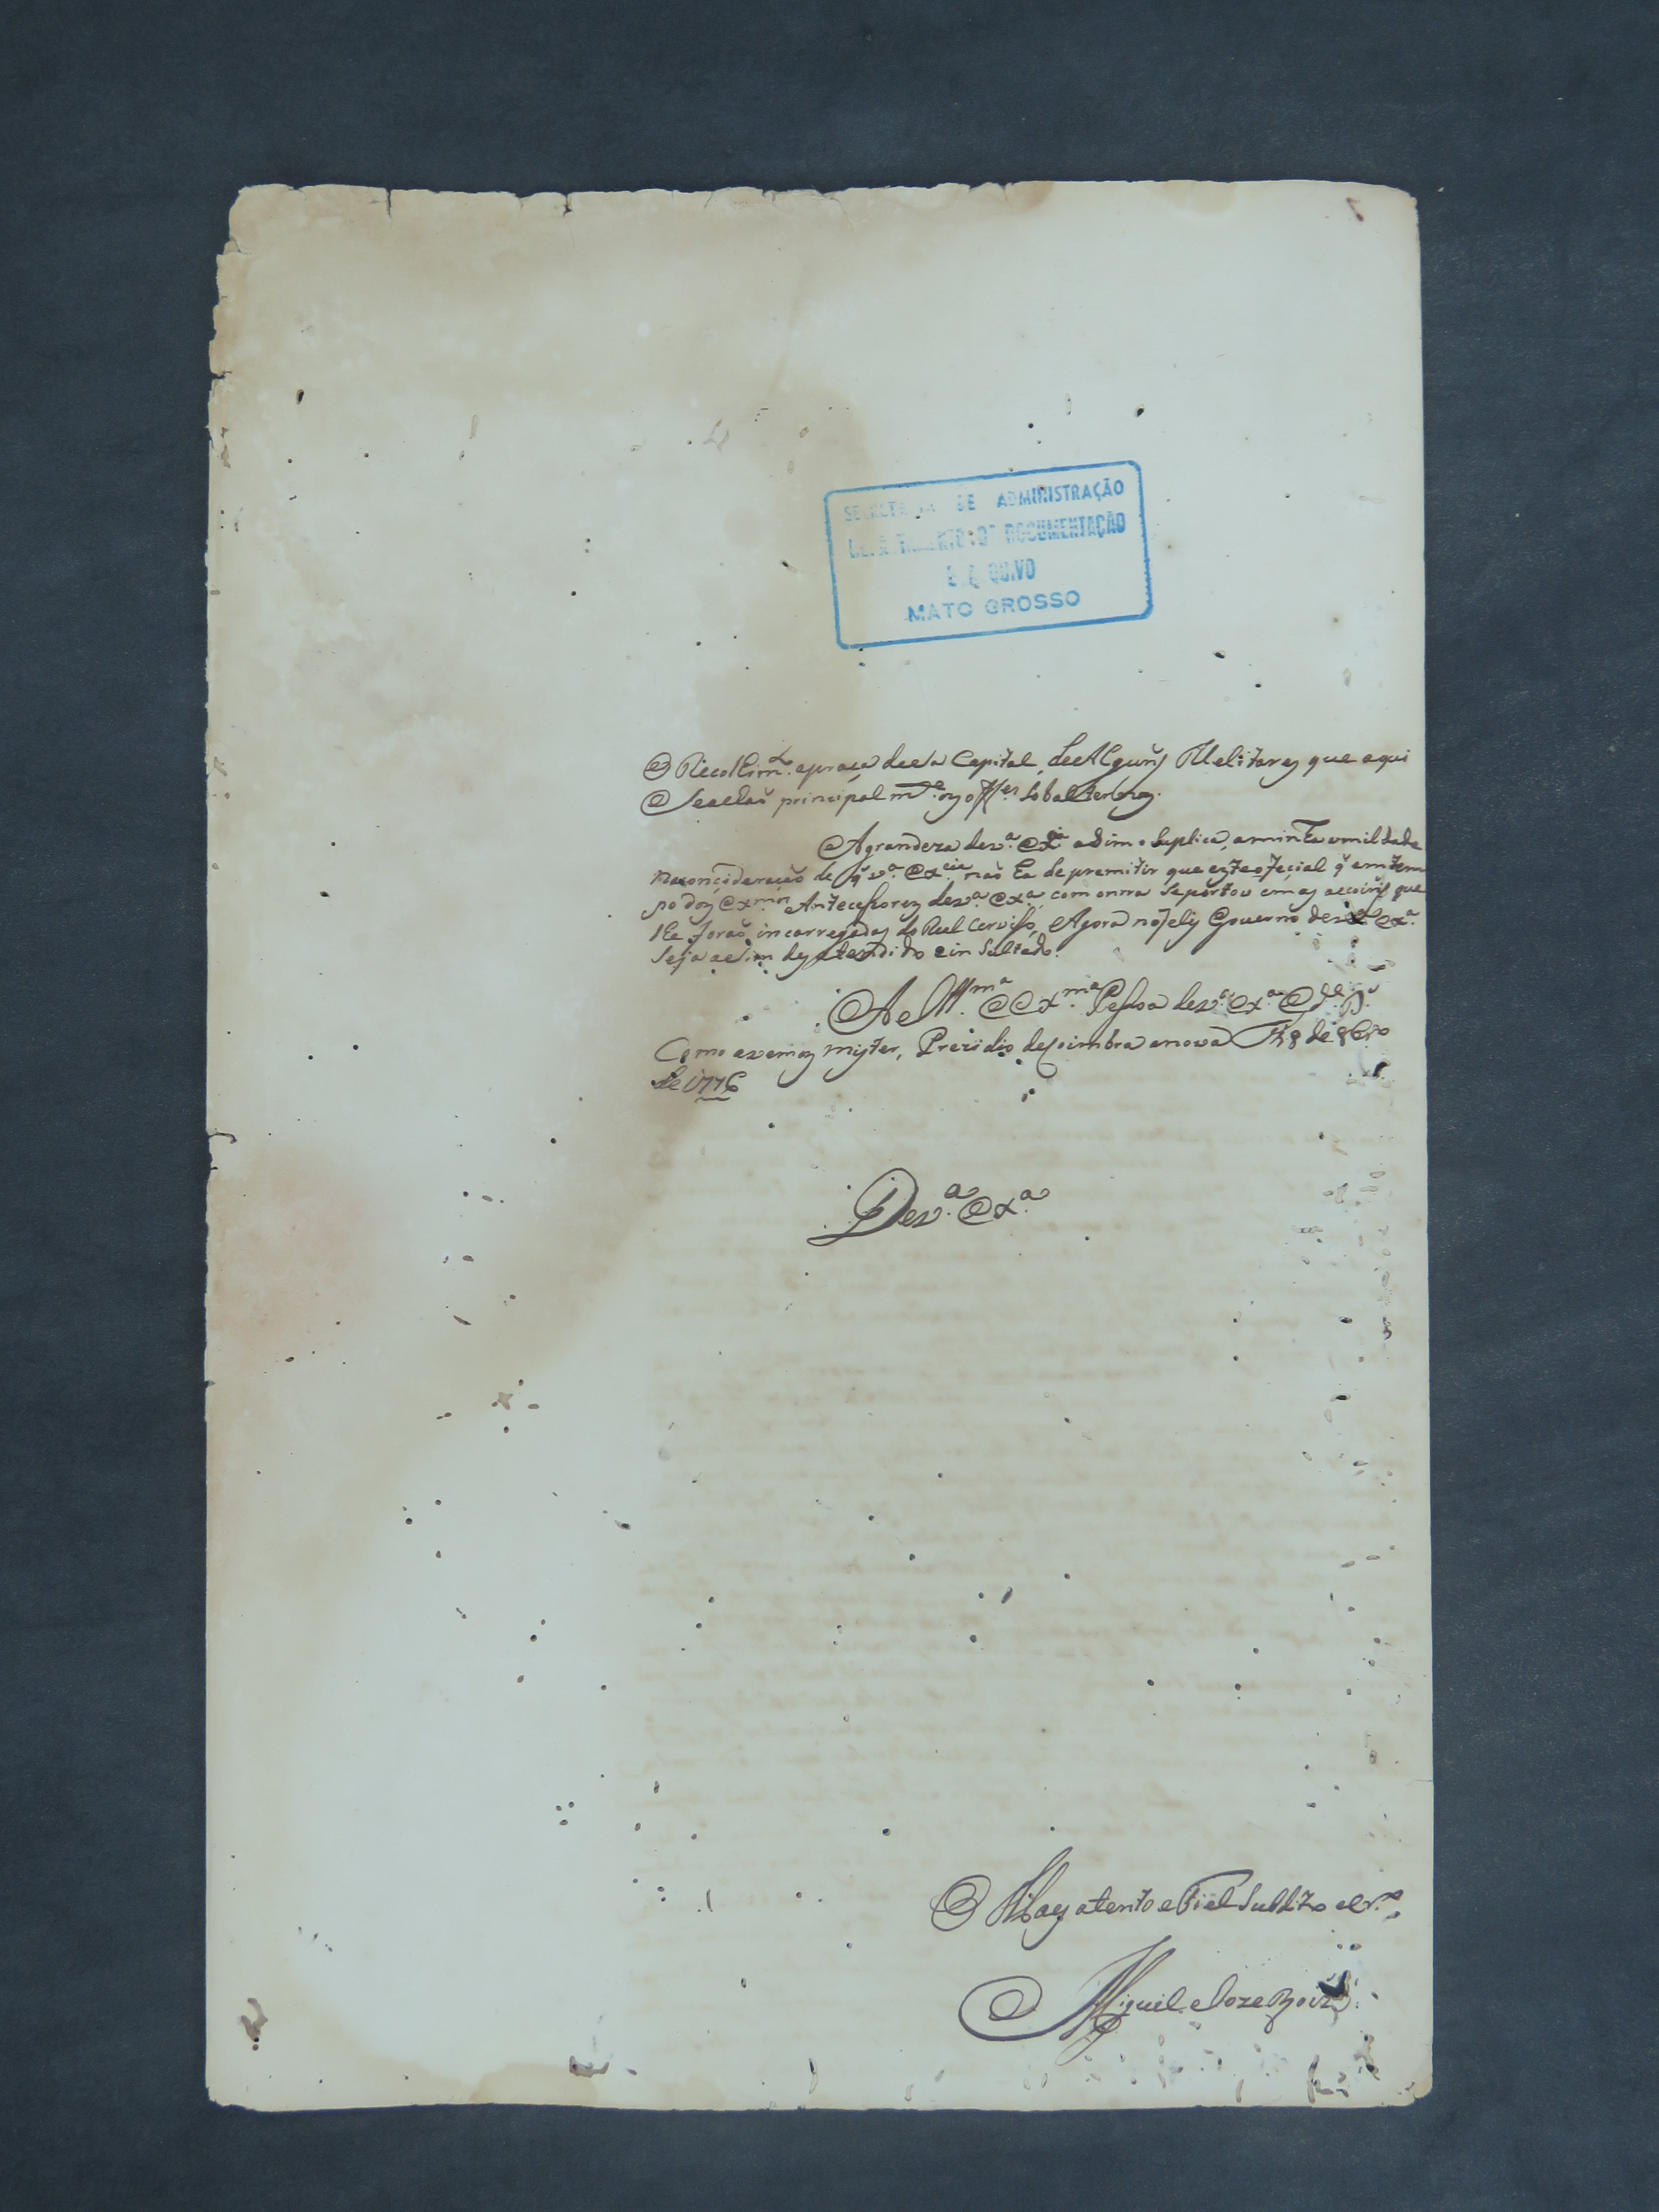 SECRETARIA DE ADMINISTRAÇÃO
DEPARTAMENTO DE DOCUMENTAÇÃO
E ARQUIVO
MATO GROSSO
O Recolhim.to apraça desa Capital, de Alguñs Melitares que aqui
Seachaõ principal m.te os off.es Sobalternos.
Agrandeza dev.a Ex.a asim o Suplica, aminha umildade
naconcideração de q̃ v.a Ex.cia naõ ha depremitir que este ofecial q̃ em tem
po dos Ex.mos Antecessores dev.a Ex.a, com onrra Seportou em as accoiñs que
lhe foraõ incarregadas do Rial Cerviso, Agora nofelis Governo dev.a Ex.a
Seja asim desatendido e in Sultado.
A Ill.ma e Ex.ma Pessoa dev.a Ex.a G.de D.s
Como avemos mister, Prezidio decoimbra anova 18 de 8br.o
de 1776
Dev.a Ex.a
O Mais atento e Fiel Subdito
Miguel Joze Roiz